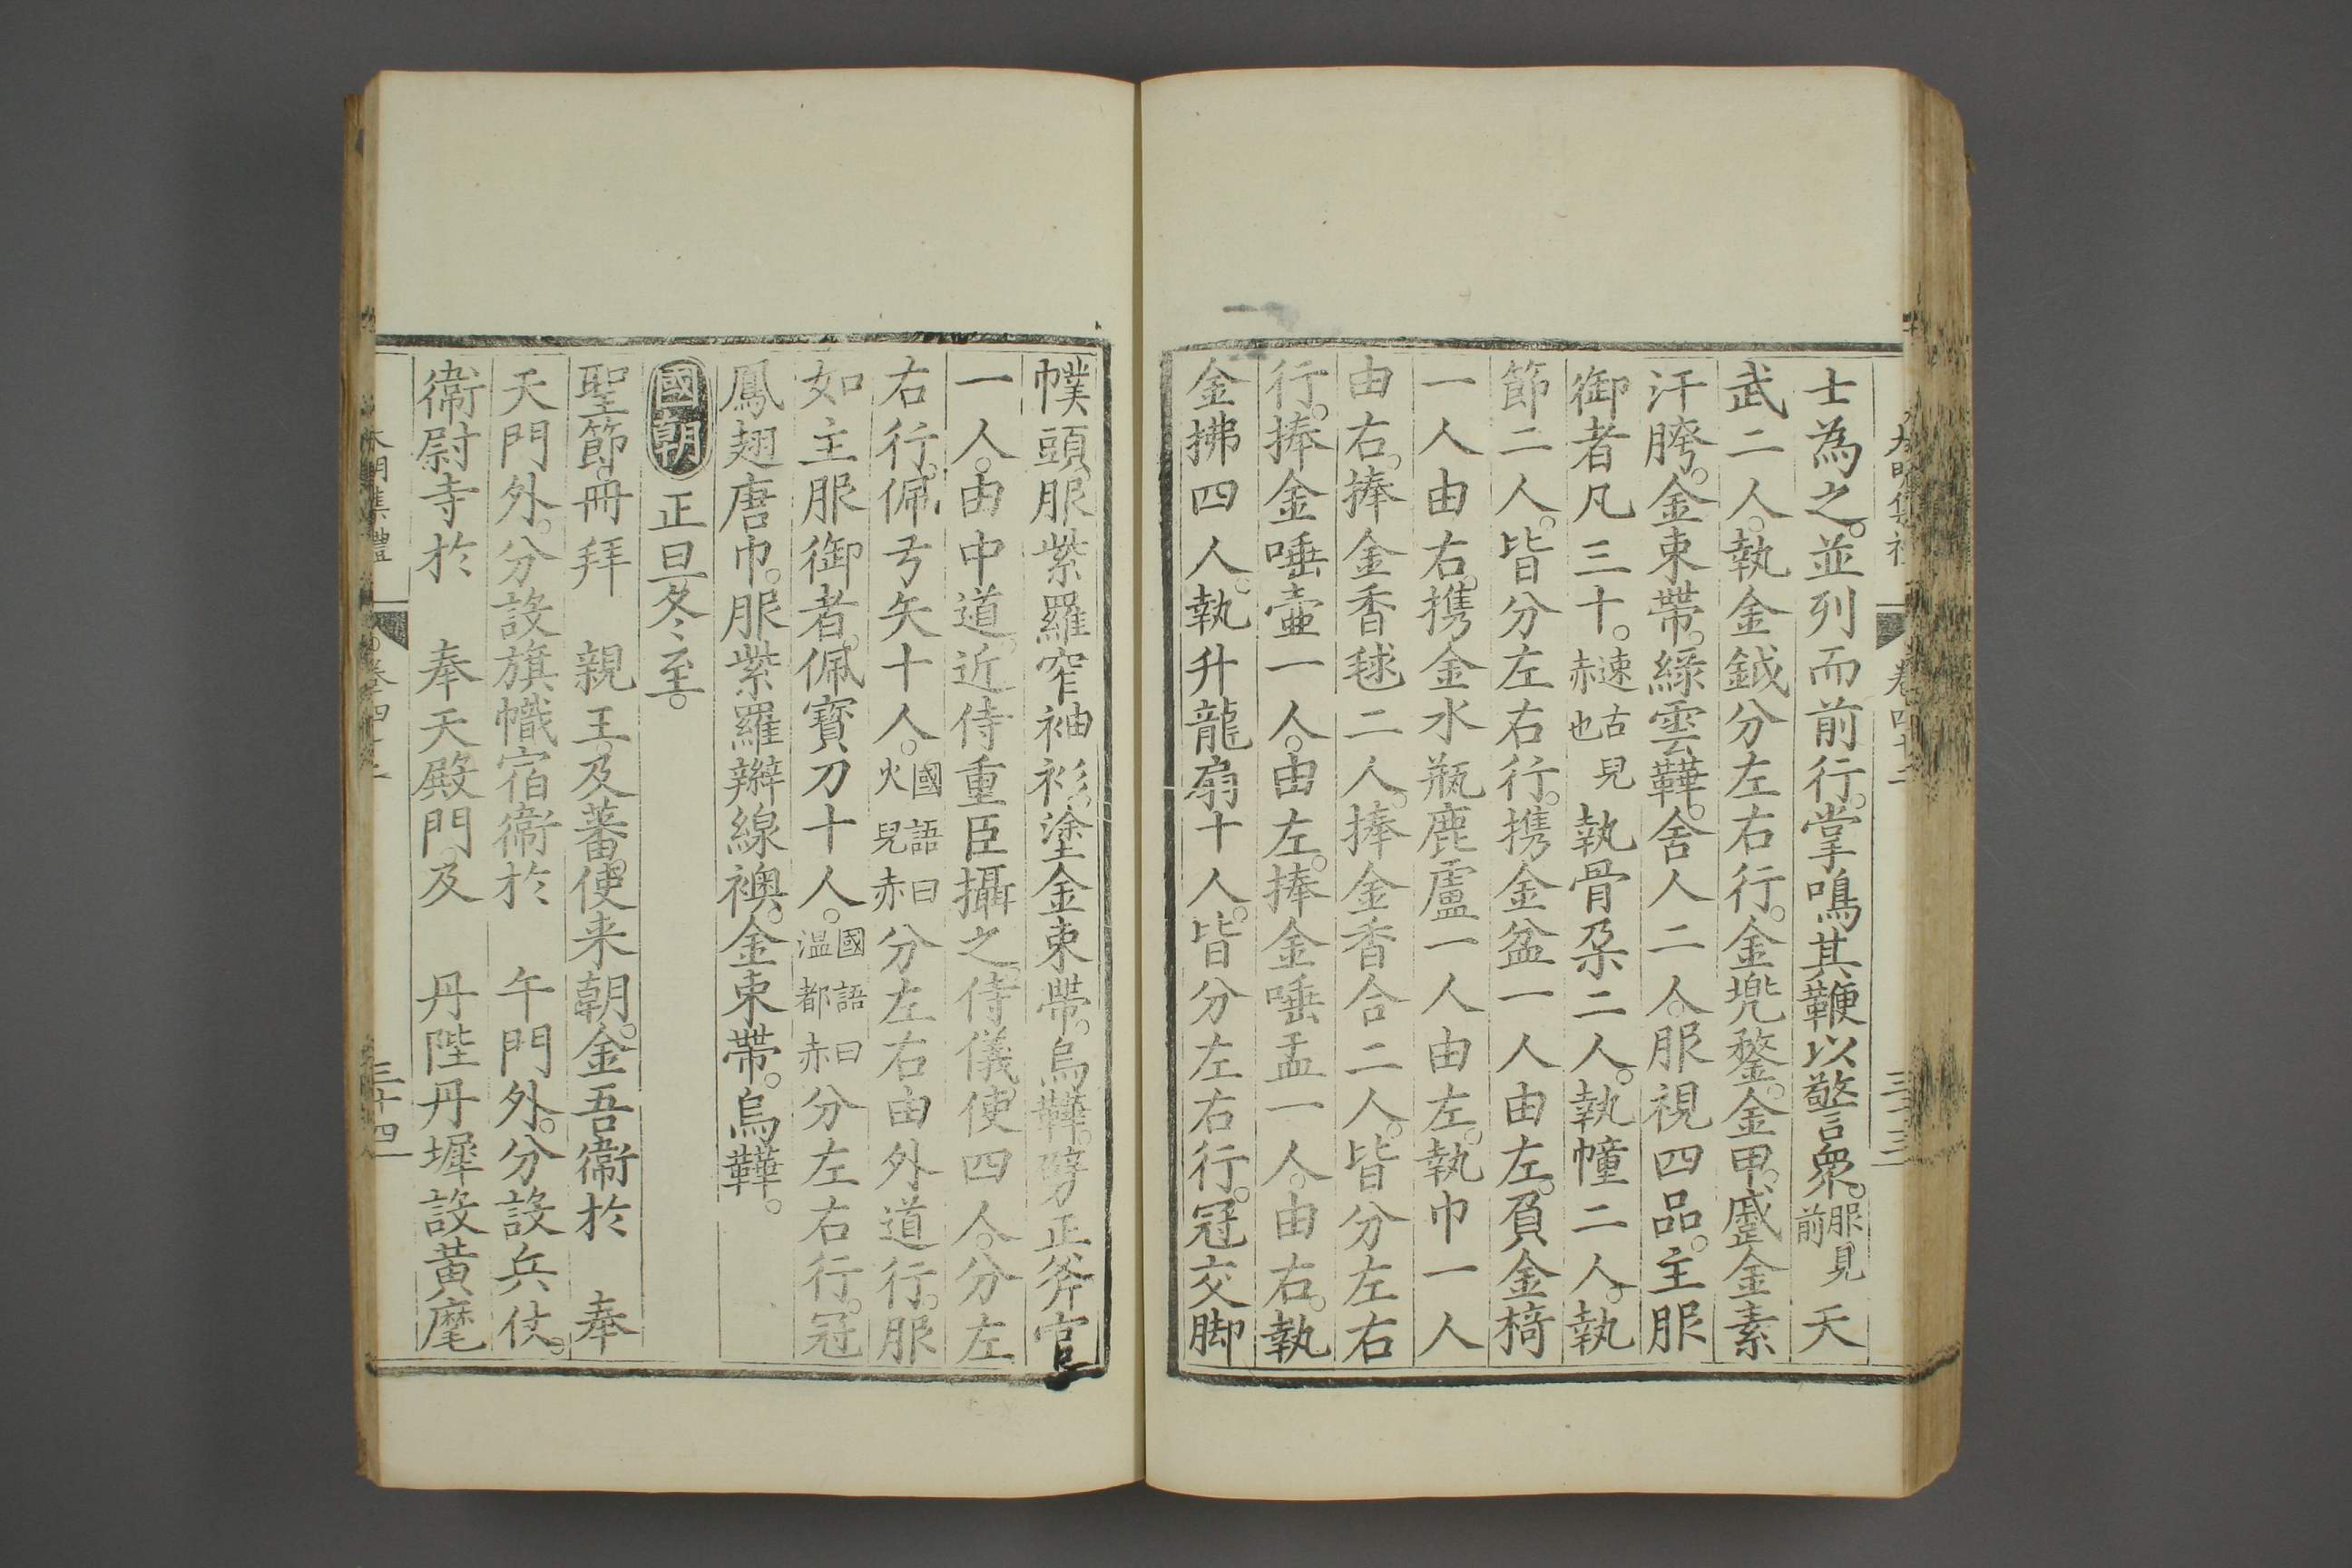 士為之。並列而前行。掌鳴其鞭以警衆。服見前天
武二人。執金鉞分左右行。金兠鍪。金甲。蹙金素
汗胯。金束帶。緑雲鞾。舍人二人。服視四品。主服
御者凡三十。速古兒赤也執骨朶二人。執幢二人。執
節二人。皆分左右行。携金盆一人由左。負金椅
一人由右。携金水瓶鹿盧一人由左。執巾一人
由右。捧金香毬二人。捧金香合二人。皆分左右
行。捧金唾壷一人。由左。捧金唾盂一人。由右。執
金拂四人。執升龍扇十人。皆分左右行。冠交脚
幞頭。服紫羅窄袖衫。塗金束帶。烏鞾。劈正斧官
一人。由中道。近侍重臣攝之。侍儀使四人。分左
右行。佩弓矢十人。國語曰火兒赤分左右由外道行。服
如主服御者。佩寳刀十人。國語曰温都赤分左右行。冠
鳳翅唐巾。服紫羅辮線襖。金束帶。烏鞾。
國朝 正旦。冬至。
聖節。冊拜 親王。及蕃使来朝。金吾衛於 奉
天門外。分設旗幟。宿衛於 午門外。分設兵仗。
衛尉寺於 奉天殿門。及 丹陛丹墀設黄麾
大明集禮 卷四十二 三十四